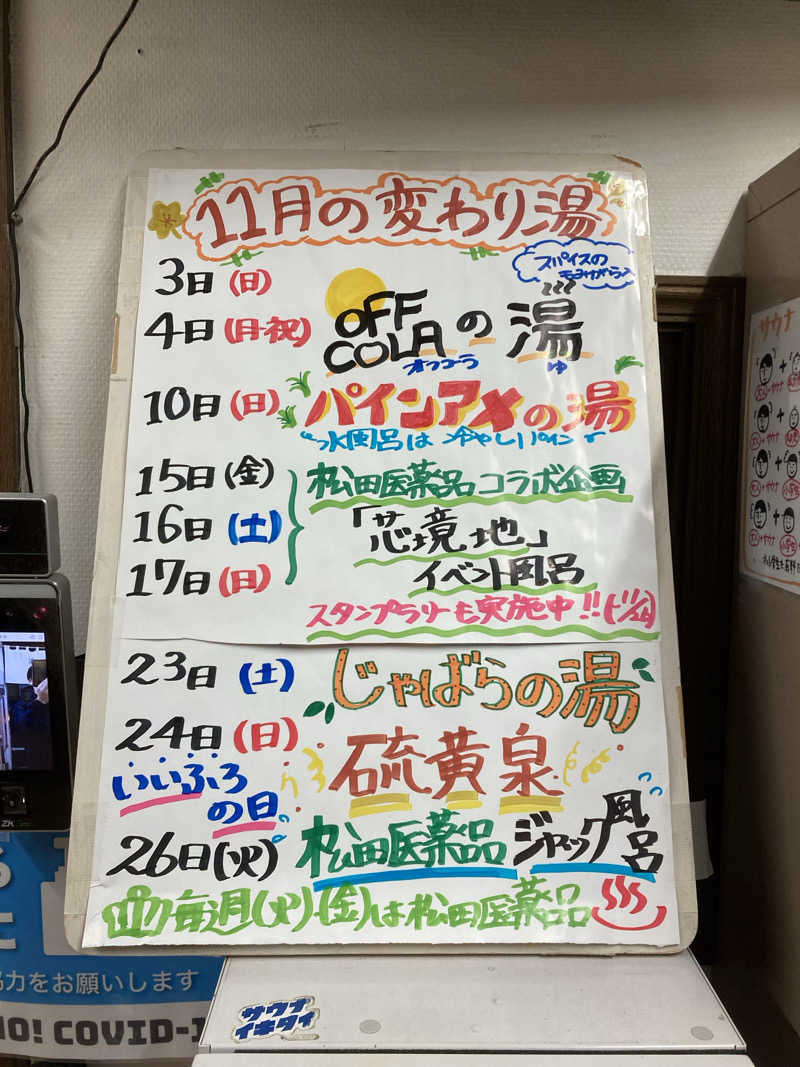 11月の変わり湯
スパイスの
3日(日)
4日(月・祝)
OFF
COLAの湯
オフコーラ
ゆ
10日(日)
パインアメの湯
水風呂は冷やしパイン
15日(金)
16日(土)
17日(日)
松田医薬品コラボ企画
「芯境地」
イベント風呂
スタンプラリーも実施中!!
23日(土)
じゃばらの湯
24日(日)
硫黄泉
いいふろ
の日
26日(火)
松田医薬品ジャック風呂
毎週(火)・(金)は松田医薬品
サウナ
イキタイ
力をお願いします
NO! COVID-1
サウナ